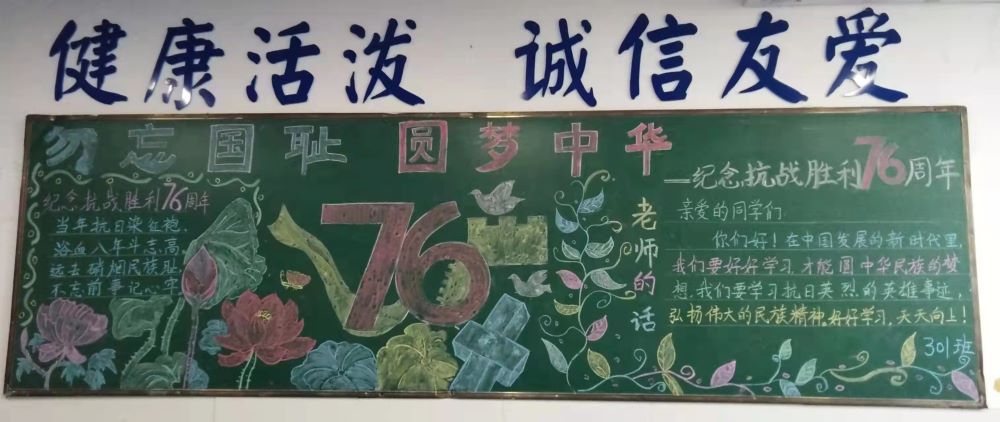 健康活泼 诚信友爱
勿忘国耻 圆梦中华
纪念抗战胜利76周年
当年抗日染征袍,
浴血八年斗志高
远去硝烟民族耻,
不忘前事记心牢
76
老师的话
—纪念抗战胜利76周年
亲爱的同学们
你们好!在中国发展的新时代里,
我们要好好学习,才能圆中华民族的梦
想.我们要学习抗日英烈的英雄事迹,
弘扬伟大的民族精神,好好学习,天天向上!
301班